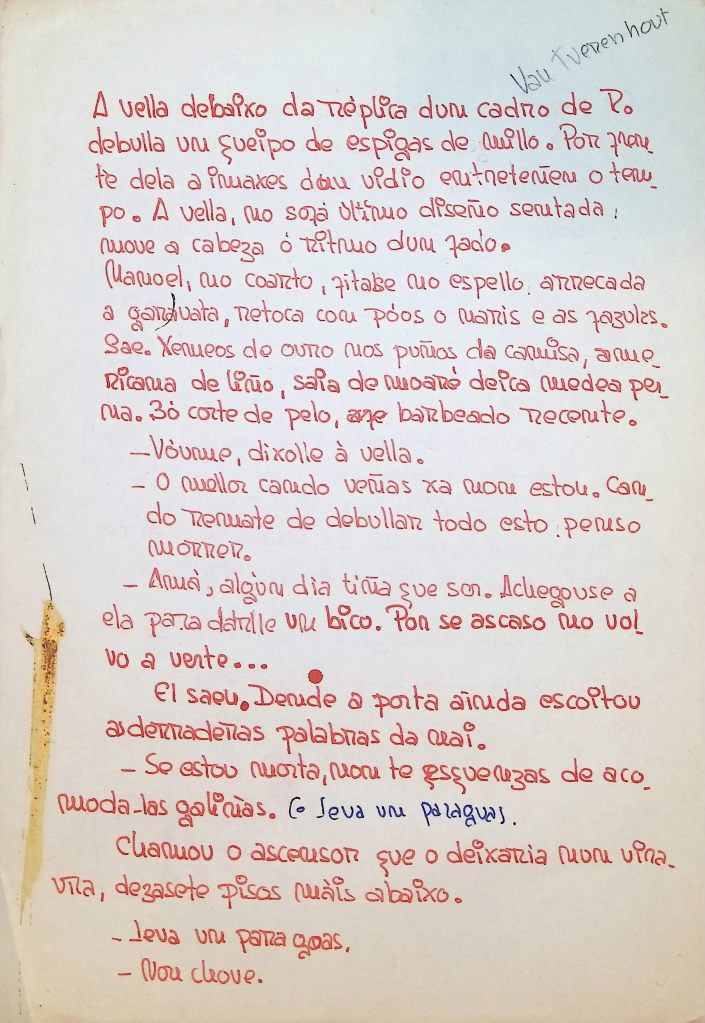 Vau Tverenhout
A vella debaixo da réplica dum cadro de P.
debulla un queipo de espigas de millo. Por fron_
te dela a imaxes dun vidio entreteñen o tem_
po. A vella, no sofá último diseño sentada,
move a cabeza ó ritmo dun fado.
Manoel, no coarto, fitase no espello, arrecada
a garavata, retoca con póos o naris e as fazulas.
Sae. Xemeos de ouro nos puños da camisa, ame_
ricana de liño, saia de moaré deica medea per_
na. Bó corte de pelo, barbeado recente.
—Vóume, dixolle à vella.
— O mellor cando veñas xa non estou. Can_
do remate de debullar todo esto, penso
morrer.
— Amá, algún dia tiña que ser. Achegouse a
ela para darlle un bico. Por se ascaso no vol_
vo a verte...
El saeu. Dende a porta ainda escoitou
as derradeiras palabras da mai.
— Se estou morta, non te esquenzas de aco_
moda-las galiñas. Leva un paraguas.
Chamou o ascensor que o deixaria nun vira_
vira, dezasete pisos máis abaixo.
— Leva un paragoas.
— Non chove.